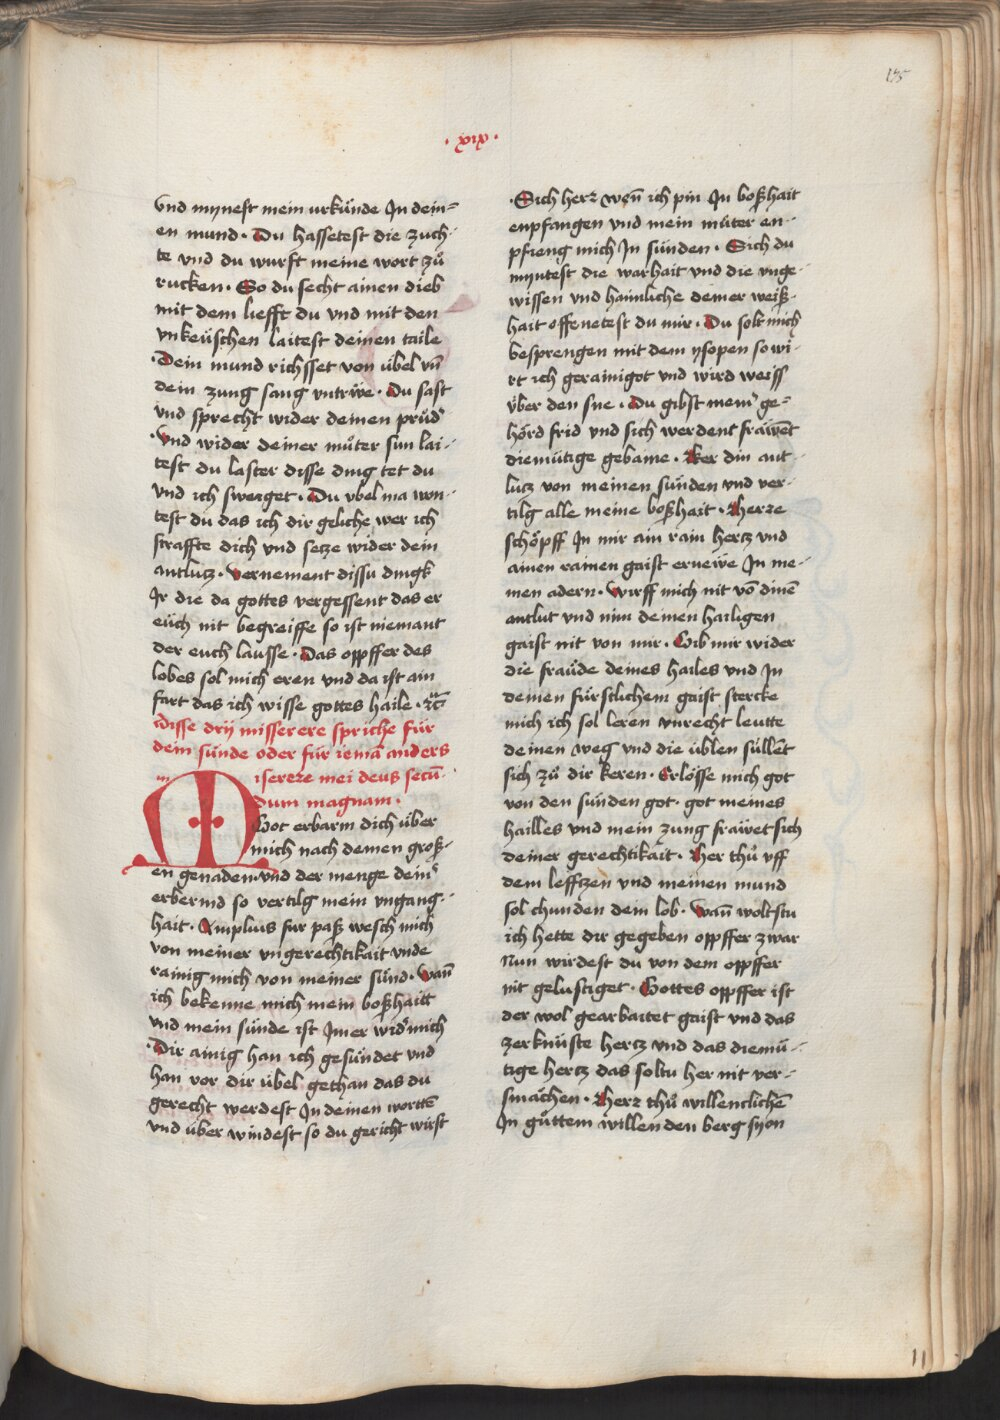 135
· xix ·
vnd mynest mein urkünde In dein=
en mund · Du hassetest die zuch-
te vnd du wurft meine wort zů
rucken · So du secht ainen dieb
mit dem liefft du vnd mit den
vnkeüschen laitest deinen taile
· Dein mund richsset von übel vn̄
dein zung sang vntrẅe · Du sast
vnd sprecht wider deinen průdʾ
· Vnd wider deiner můter sun lai-
test du laster disse ding tet du
vnd ich sweiget · Du vbel ma won-
test du das ich dir geliche wer ich
straffte dich vnd setze wider dein
antlutz · Vernement dissu dingk
Ir die da gottes vergessent das er
eüch nit begreiffe so ist niemant
der euch lausse · Das oppffer des
lobes sol mich eren vnd da ist ain
fart das ich wisse gottes haile · ꝛc̄
Disse drÿ misserere spriche für
dein sünde oder für iemā anders
Miserere mei deus secū-
dum magnam ·
Got erbarm dich über
mich nach deinen groß-
en genaden · vnd der menge deinʾ
erbermd so vertilg mein vngang-
hait · Amplius fur paß wesch mich
von meiner vngerechtikait vnde
rainig mich von meiner sünd · Wan̄
ich bekenne mich mein boßhaitt
vnd mein sünde ist Imer widʾ mich
· Dir ainig han ich gesündet vnd
han vor dir übel gethan das du
gerecht werdest In deinen wortē
vnd über windest so du gericht wirst
· Sich herz wen̄ ich pin In boßhait
enpfangen vnd mein můter en-
pfieng mich In sünden · Sich du
myntest die warhait vnd die vnge-
wissen vnd haimliche deiner weiß-
hait offenetest du mir · Du solt mich
besprengen mit dem ysopen so wi-
rt ich gerainigot vnd wird weiss
über den sne · Du gibst meinʾ ge=
hörd frid vnd sich werdent fräwēt
diemütige gebaine · Ker din ant-
lutz von meinen sünden vnd ver-
tilg alle meine boßhait · Herze
schöpff In mir ain rain hertz vnd
ainen rainen gaist ernewe In me-
inen adern · Wirff mich nit vō dinē
antlut vnd nim deinen hailigen
gaist nit von mir · Gib mir wider
die fraüde deines hailes vnd In
deinen fürstlichem gaist stercke
mich ich sol leren vnrecht leutte
deinen weg vnd die üblen süllēt
sich zů dir keren · Erlösse mich got
von den sünden got · got meines
hailles vnd mein zung fräwet sich
deiner gerechtikait · Her thů vff
dem lefftzen vnd meinen mund
sol chunden dem lob · Wan̄ woltstu
ich hette dir gegeben oppffer zwar
Nun wirdest du von dem oppffer
nit gelustiget · Gottes oppffer ist
der wol gearbaitet gaist vnd das
zerknüste hertz vnd das diemü-
tige hertz das soltu her nit ver-
smächen · Herz thů willenclichē
In gůttem willen den berg syon
11